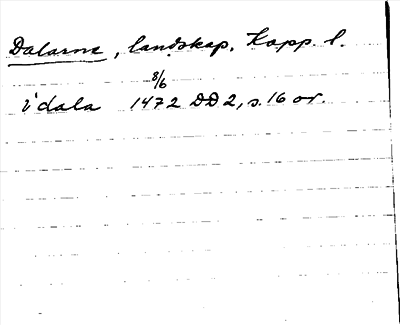 Dalarna, landskap. Kopp. l.
8/6
i dala 1472 DD 2, s. 16 or.